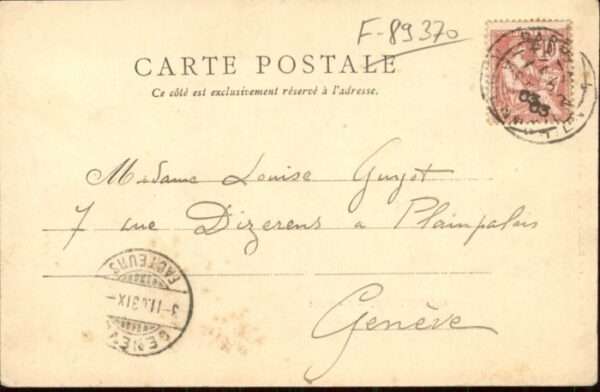 F-89370
CARTE POSTALE
Ce côté est exclusivement réservé à l'adresse.
PARIS
03
03
Madame Louise Guyot
7 rue Dizerens à Plainpalais
Genève
FACTEURS
3-II.03 IX-
GENÈVE